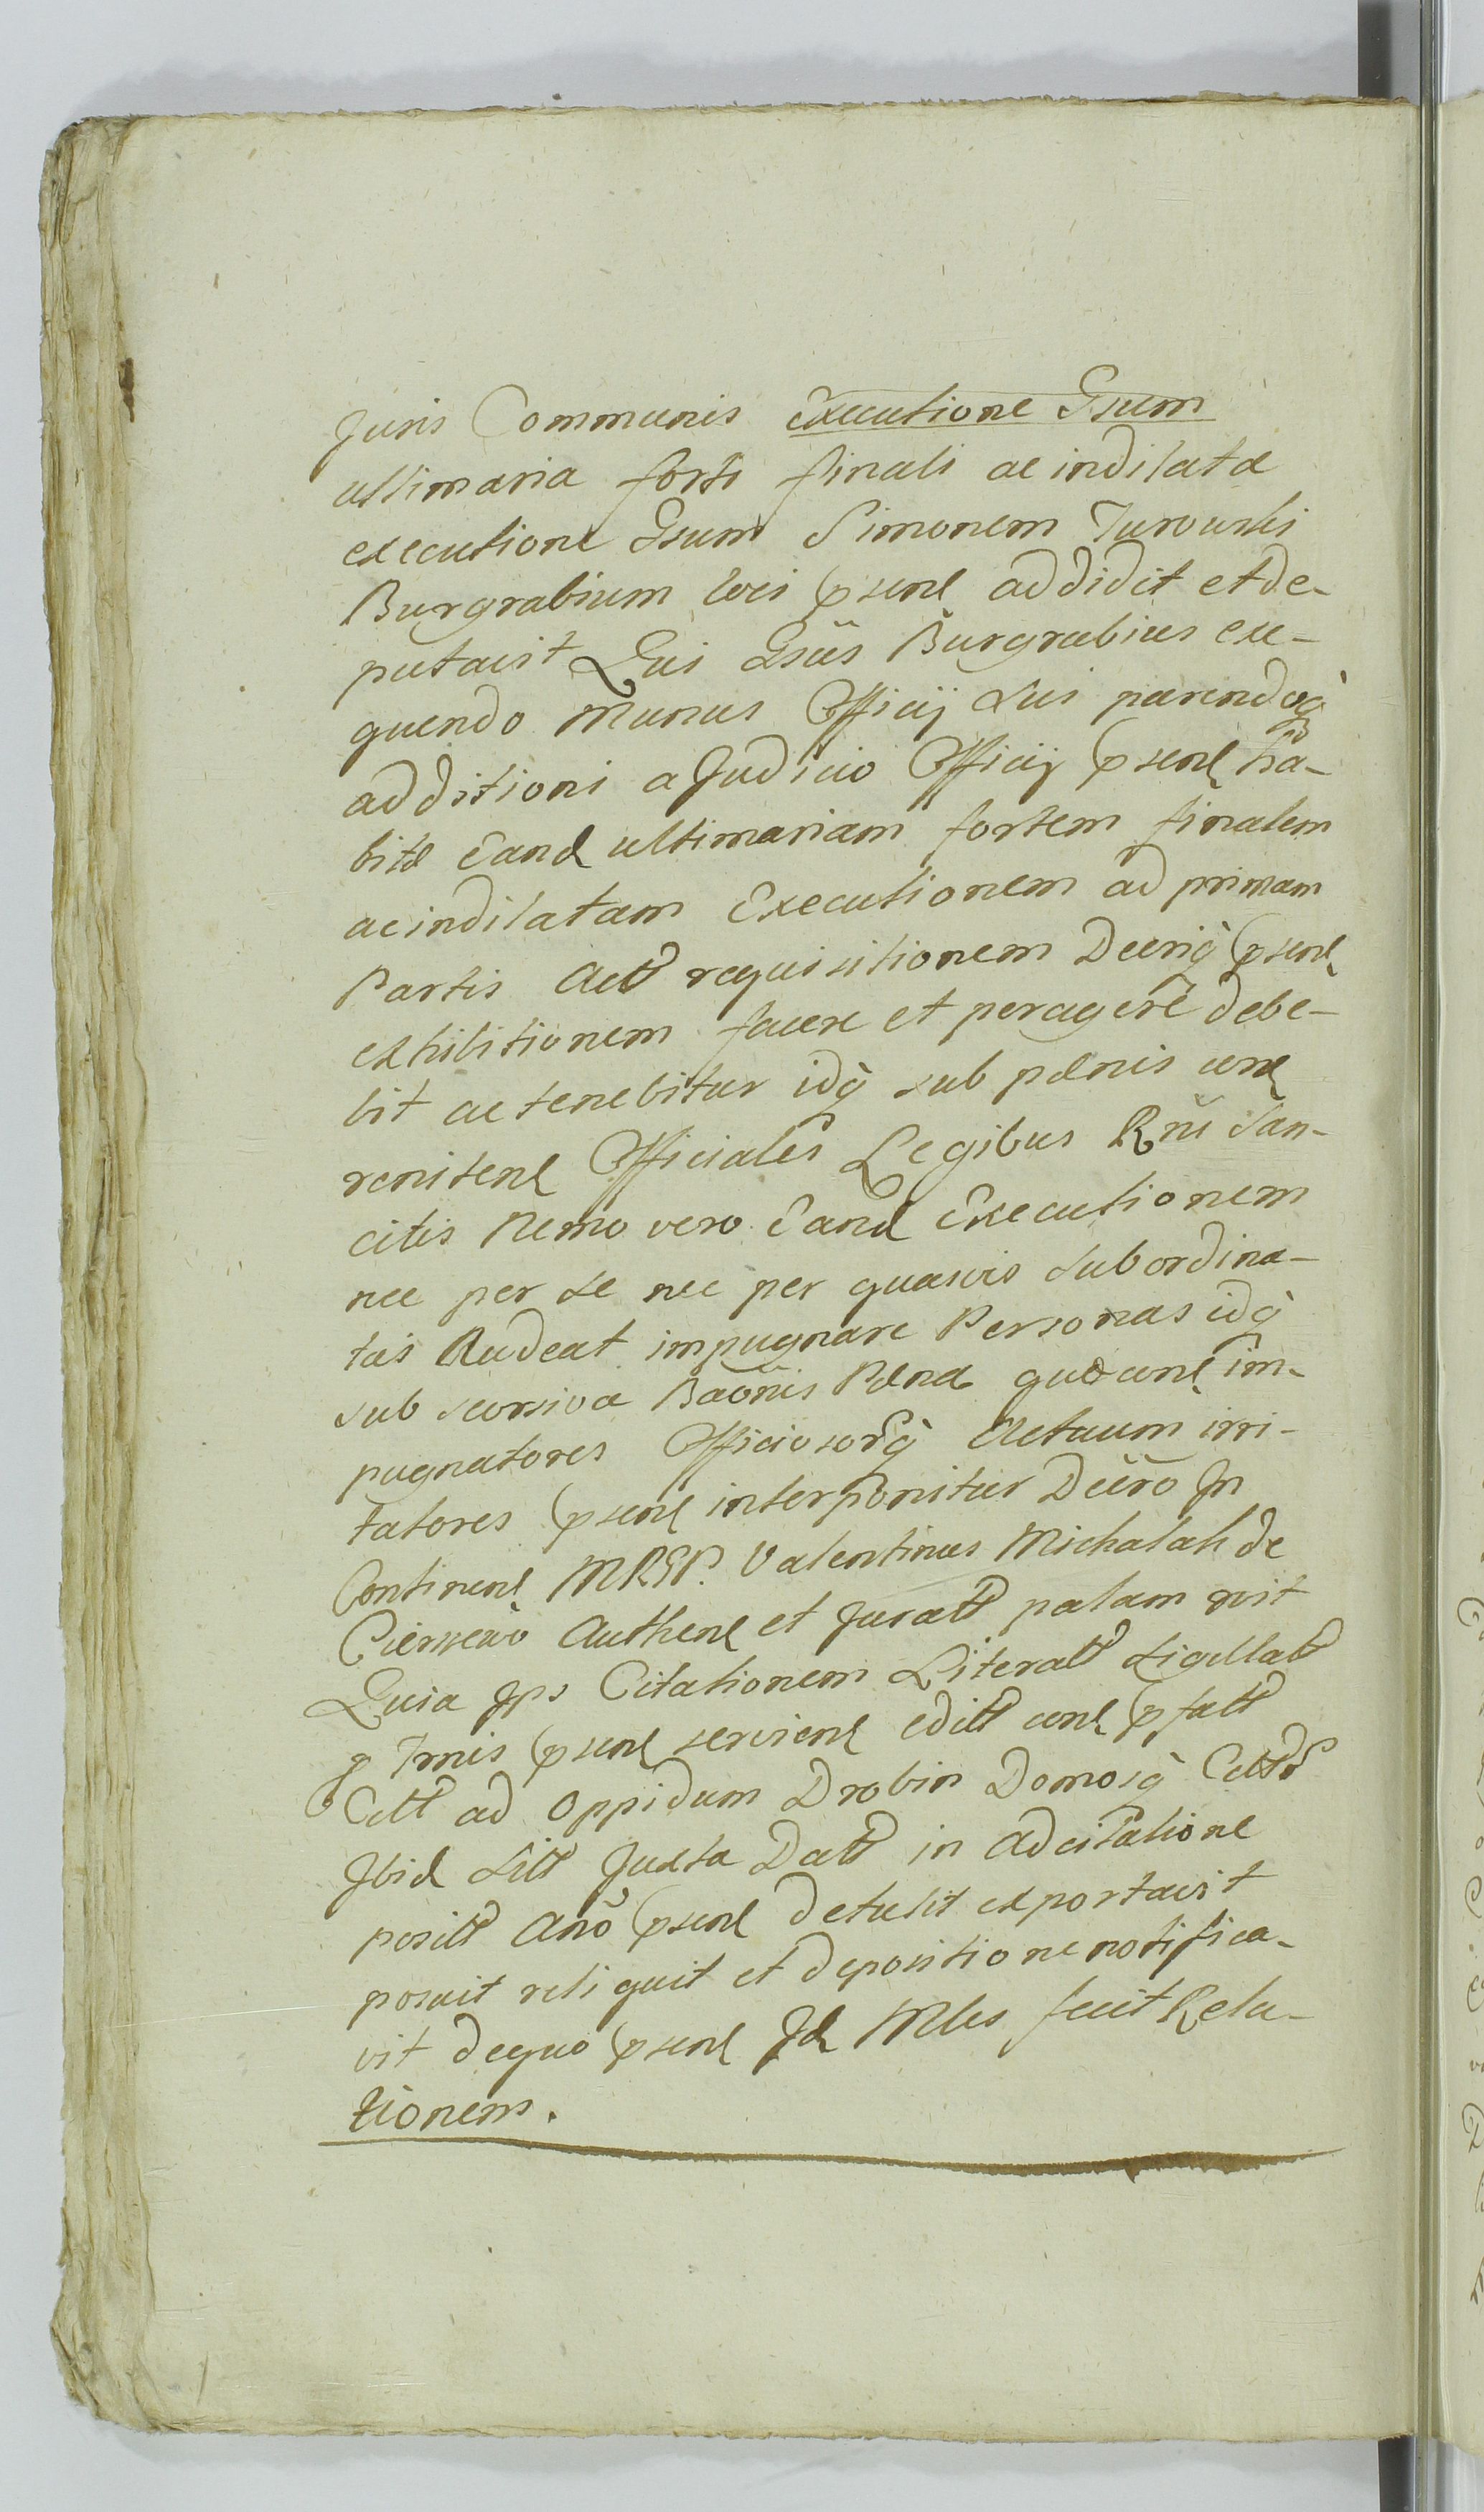 Juris Communis executione Gsum
ultimaria forti finali ac indilata
executione Gsum Simonem Turowski
Burgrabium loci pssent addidit et de-
putavit Qui Gsus Burgrabius exe-
quendo munus Officij sui parendoq
additioni a Judicio Officij pssent ha-
bitæ Eand ultimariam fortem finalem
ac indilatam Executionem ad primam
Partis Actt requisitionem Decriq pssent
exhibitionem facere et peragere debe-
bit ac tenebitur idq sub pœnis cont
renitent Officiales Legibus Rni San-
citis Nemo vero Eand Executionem
nec per se nec per quasvis subordina-
tas Audeat impugnare Personas idq
sub seorsiva Baonis Pœna quæ cont im-
pugnatores Officiosorq Actuum irri-
tatores pssent interponitur Decro In
Continent MRGP. Valentinus Michalak de
Authent et Juratt palam rvit
Quia Ips Citationem Literatt Sigillatt
g Trnis pssent servient editt cont pfatt
Citt ad Oppidum Drobin Domosq Cittor
Ibid Sitt Juxta Datt in adcitatione
positt Ano pssent detulit exportavit
posuit reliquit et depositione notifica-
vit de quo pssent Id Mles fecit Rela-
tionem.